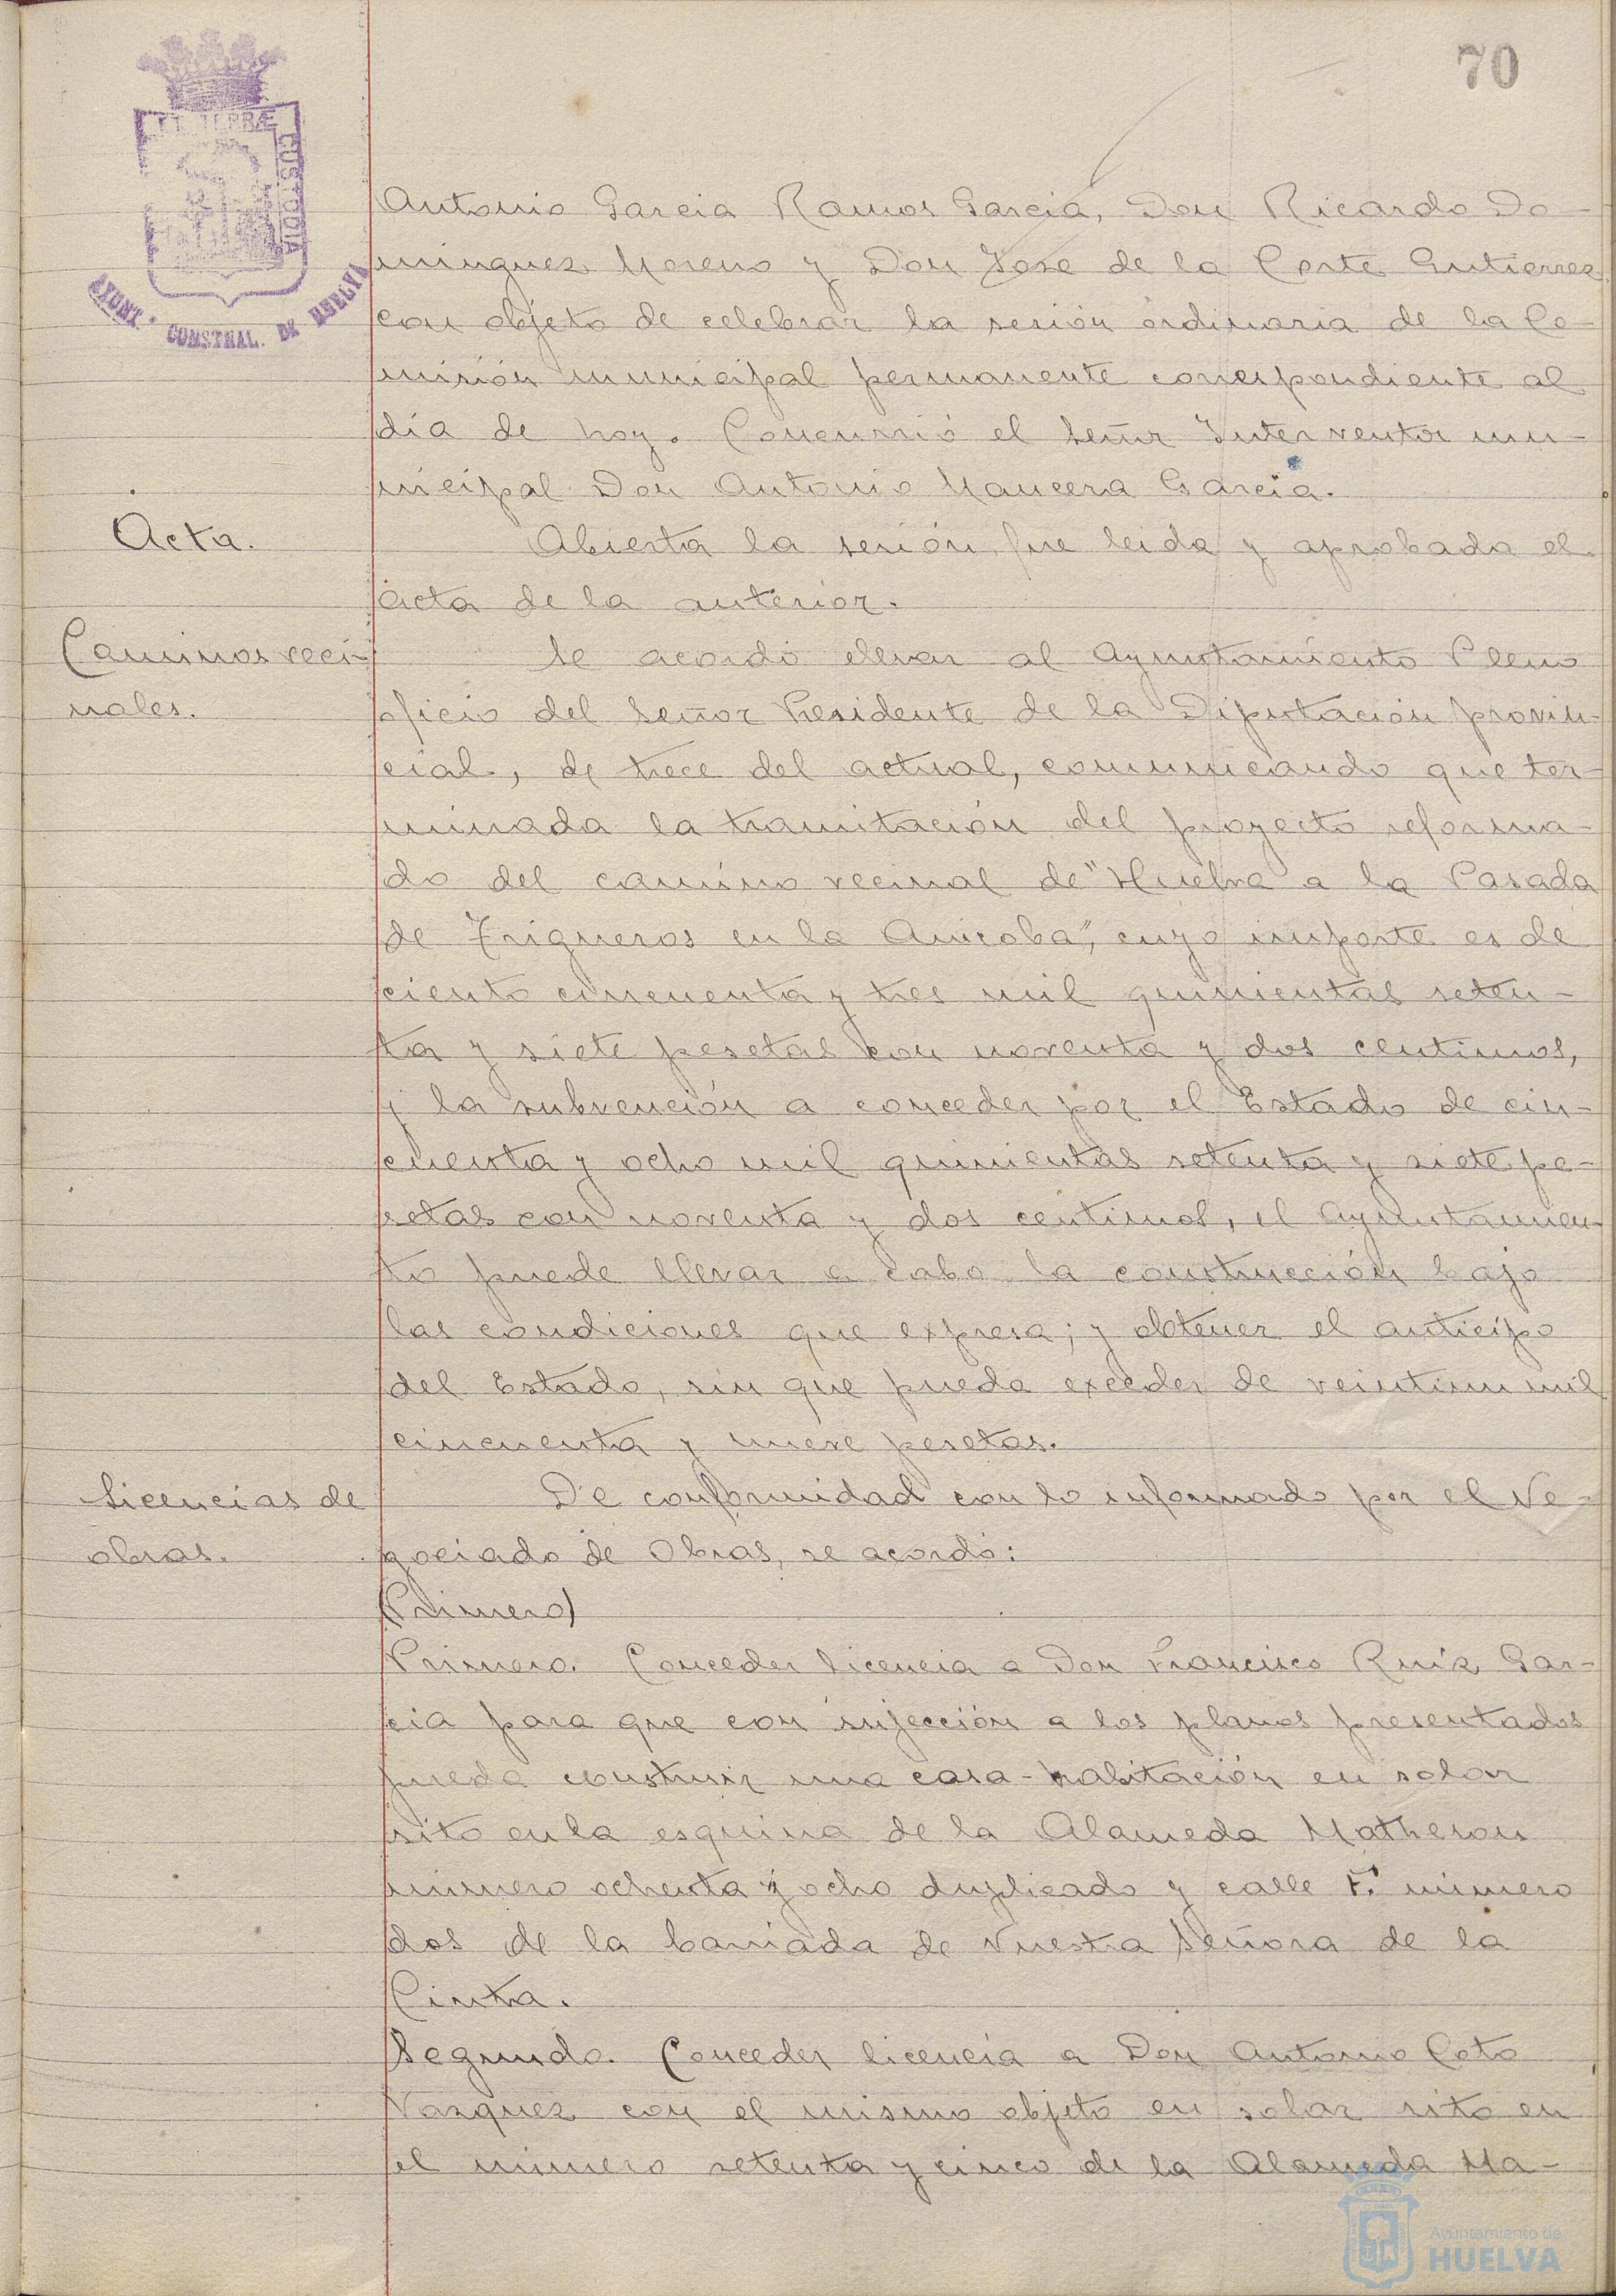 70
PORTUS MARIS ET TERRÆ CUSTODIA
AYUNT. CONSTNAL. DE HUELVA
Antonio Garcia Ramos Garcia, Don Ricardo Do-
minguez Moreno y Don Jose de la Corte Gutierrez
con objeto de celebrar la sesión ordinaria de la Co-
misión municipal permanente correspondiente al
día de hoy. Concurrió el Señor Interventor mu-
nicipal Don Antonio Mancera Garcia.
Acta.
Abierta la sesión, fue leida y aprobada el
acta de la anterior.
Caminos veci-
nales.
Se acordó elevar al Ayuntamiento Pleno
oficio del Señor Presidente de la Diputación provin-
cial, de trece del actual, comunicando que ter-
minada la tramitación del proyecto reforma-
do del camino vecinal de "Huelva a la Pasada
de Trigueros en la Anicoba", cuyo importe es de
ciento cincuenta y tres mil quinientas seten-
ta y siete pesetas con noventa y dos centimos,
y la subvención a conceder por el Estado de cin-
cuenta y ocho mil quinientas setenta y siete pe-
setas con noventa y dos centimos, el Ayuntamien-
to puede llevar a cabo la construcción bajo
las condiciones que expresa; y obtener el anticipo
del Estado, sin que pueda exceder de veintiun mil
cincuenta y nueve pesetas.
Licencias de
obras.
De conformidad con lo informado por el Ne-
gociado de Obras, se acordó:
(Primero)
Primero. Conceder licencia a Don Francisco Ruiz Gar-
cia para que con sujección a los planos presentados
pueda construir una casa-habitación en solar
sito en la esquina de la Alameda Matheson
número ochenta y ocho duplicado y calle F. número
dos de la barriada de Nuestra Señora de la
Cinta.
Segundo. Conceder licencia a Don Antonio Coto
Vazquez con el mismo objeto en solar sito en
el número setenta y cinco de la Alameda Ma-
Ayuntamiento de
HUELVA